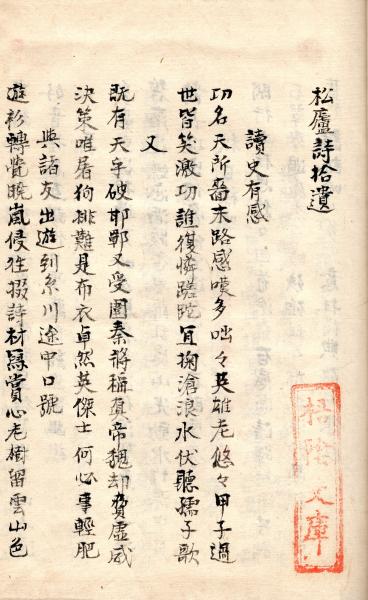 松廬詩拾遺
讀史有感
功名天所嗇末路感嘆多咄々英雄老悠々甲子過
世皆笑激功誰復憐蹉跎宜掬滄浪水伏聽孺子歌
又
既有天乎破邯鄲又受圍秦將稱眞帝魏却費虛威
決策唯屠狗排難是布衣卓然英傑士何必事輕肥
與諸友出遊到糸川途中口號
遊衫轉覺曉嵐侵往掇詩材寫賞心老樹留雲山色
楊陰文庫